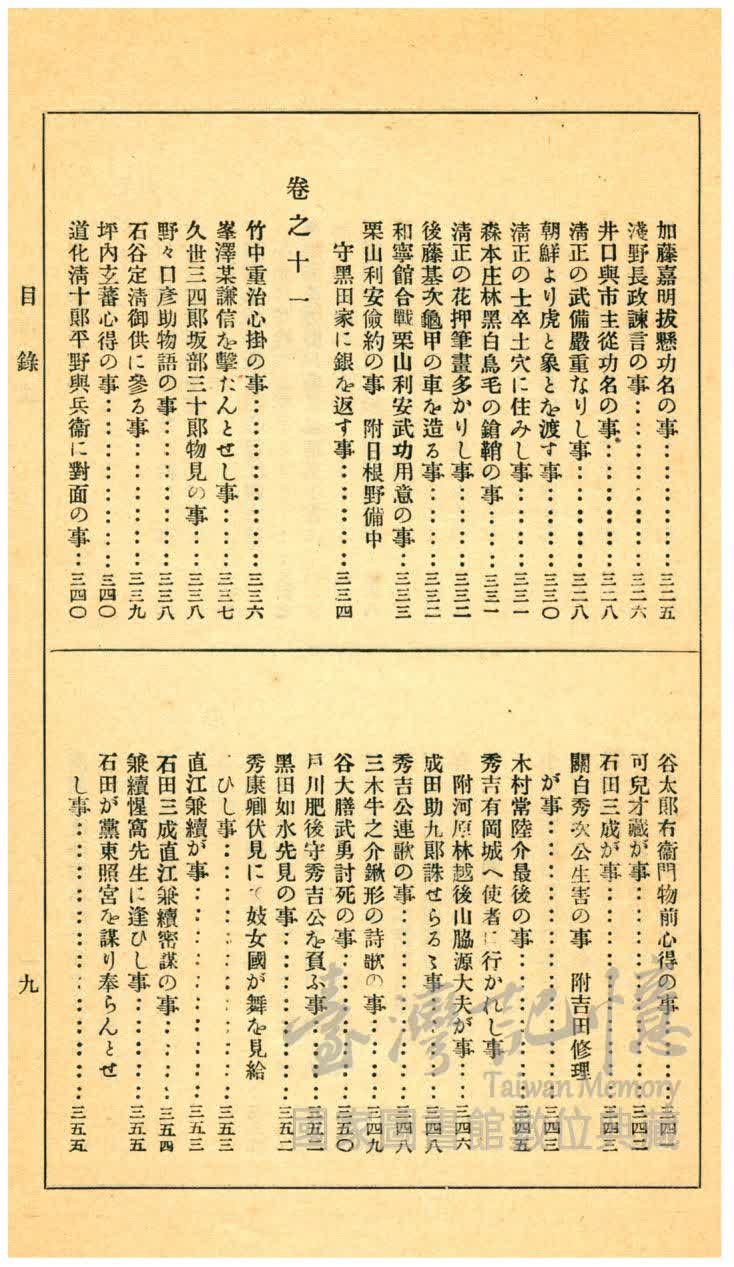 加藤嘉明拔懸功名の事………………三二五
淺野長政諫言の事………………三二六
井口與市主從功名の事………………三二八
淸正の武備嚴重なりし事………………三二八
朝鮮より虎と象とを渡す事………………三三〇
淸正の士卒土穴に住みし事………………三三一
森本庄林黑白鳥毛の鎗鞘の事………………三三一
淸正の花押筆畫多かりし事………………三三二
後藤基次龜甲の車を造る事………………三三二
和寧館合戰栗山利安武功用意の事………………三三三
栗山利安儉約の事　附日根野備中
守黑田家に銀を返す事………………三三四
卷之十一
竹中重治心掛の事………………三三六
峯澤某謙信を擊たんとせし事………………三三七
久世三四郞坂部三十郞物見の事………………三三八
野々口彥助物語の事………………三三八
石谷定淸御供に參る事………………三三九
坪內玄蕃心得の事………………三四〇
道化淸十郞平野與兵衞に對面の事………………三四〇
谷太郞右衞門物前心得の事………………三四一
可兒才藏が事………………三四二
石田三成が事………………三四三
關白秀次公生害の事　附吉田修理
が事………………三四三
木村常陸介最後の事………………三四五
秀吉有岡城へ使者に行かれし事
附河原林越後山脇源大夫が事………………三四六
成田助九郞誅せらるゝ事………………三四八
秀吉公連歌の事………………三四八
三木牛之介鍬形の詩歌の事………………三四九
谷大膳武勇討死の事………………三五〇
戶川肥後守秀吉公を負ふ事………………三五二
黑田如水先見の事………………三五二
秀康卿伏見にて妓女國が舞を見給
ひし事………………三五三
直江兼續が事………………三五三
石田三成直江兼續密謀の事………………三五四
兼續惺窩先生に逢ひし事………………三五五
石田が黨東照宮を謀り奉らんとせ
し事………………三五五
目錄
九
臺灣記憶
Taiwan Memory
國家圖書館數位典藏